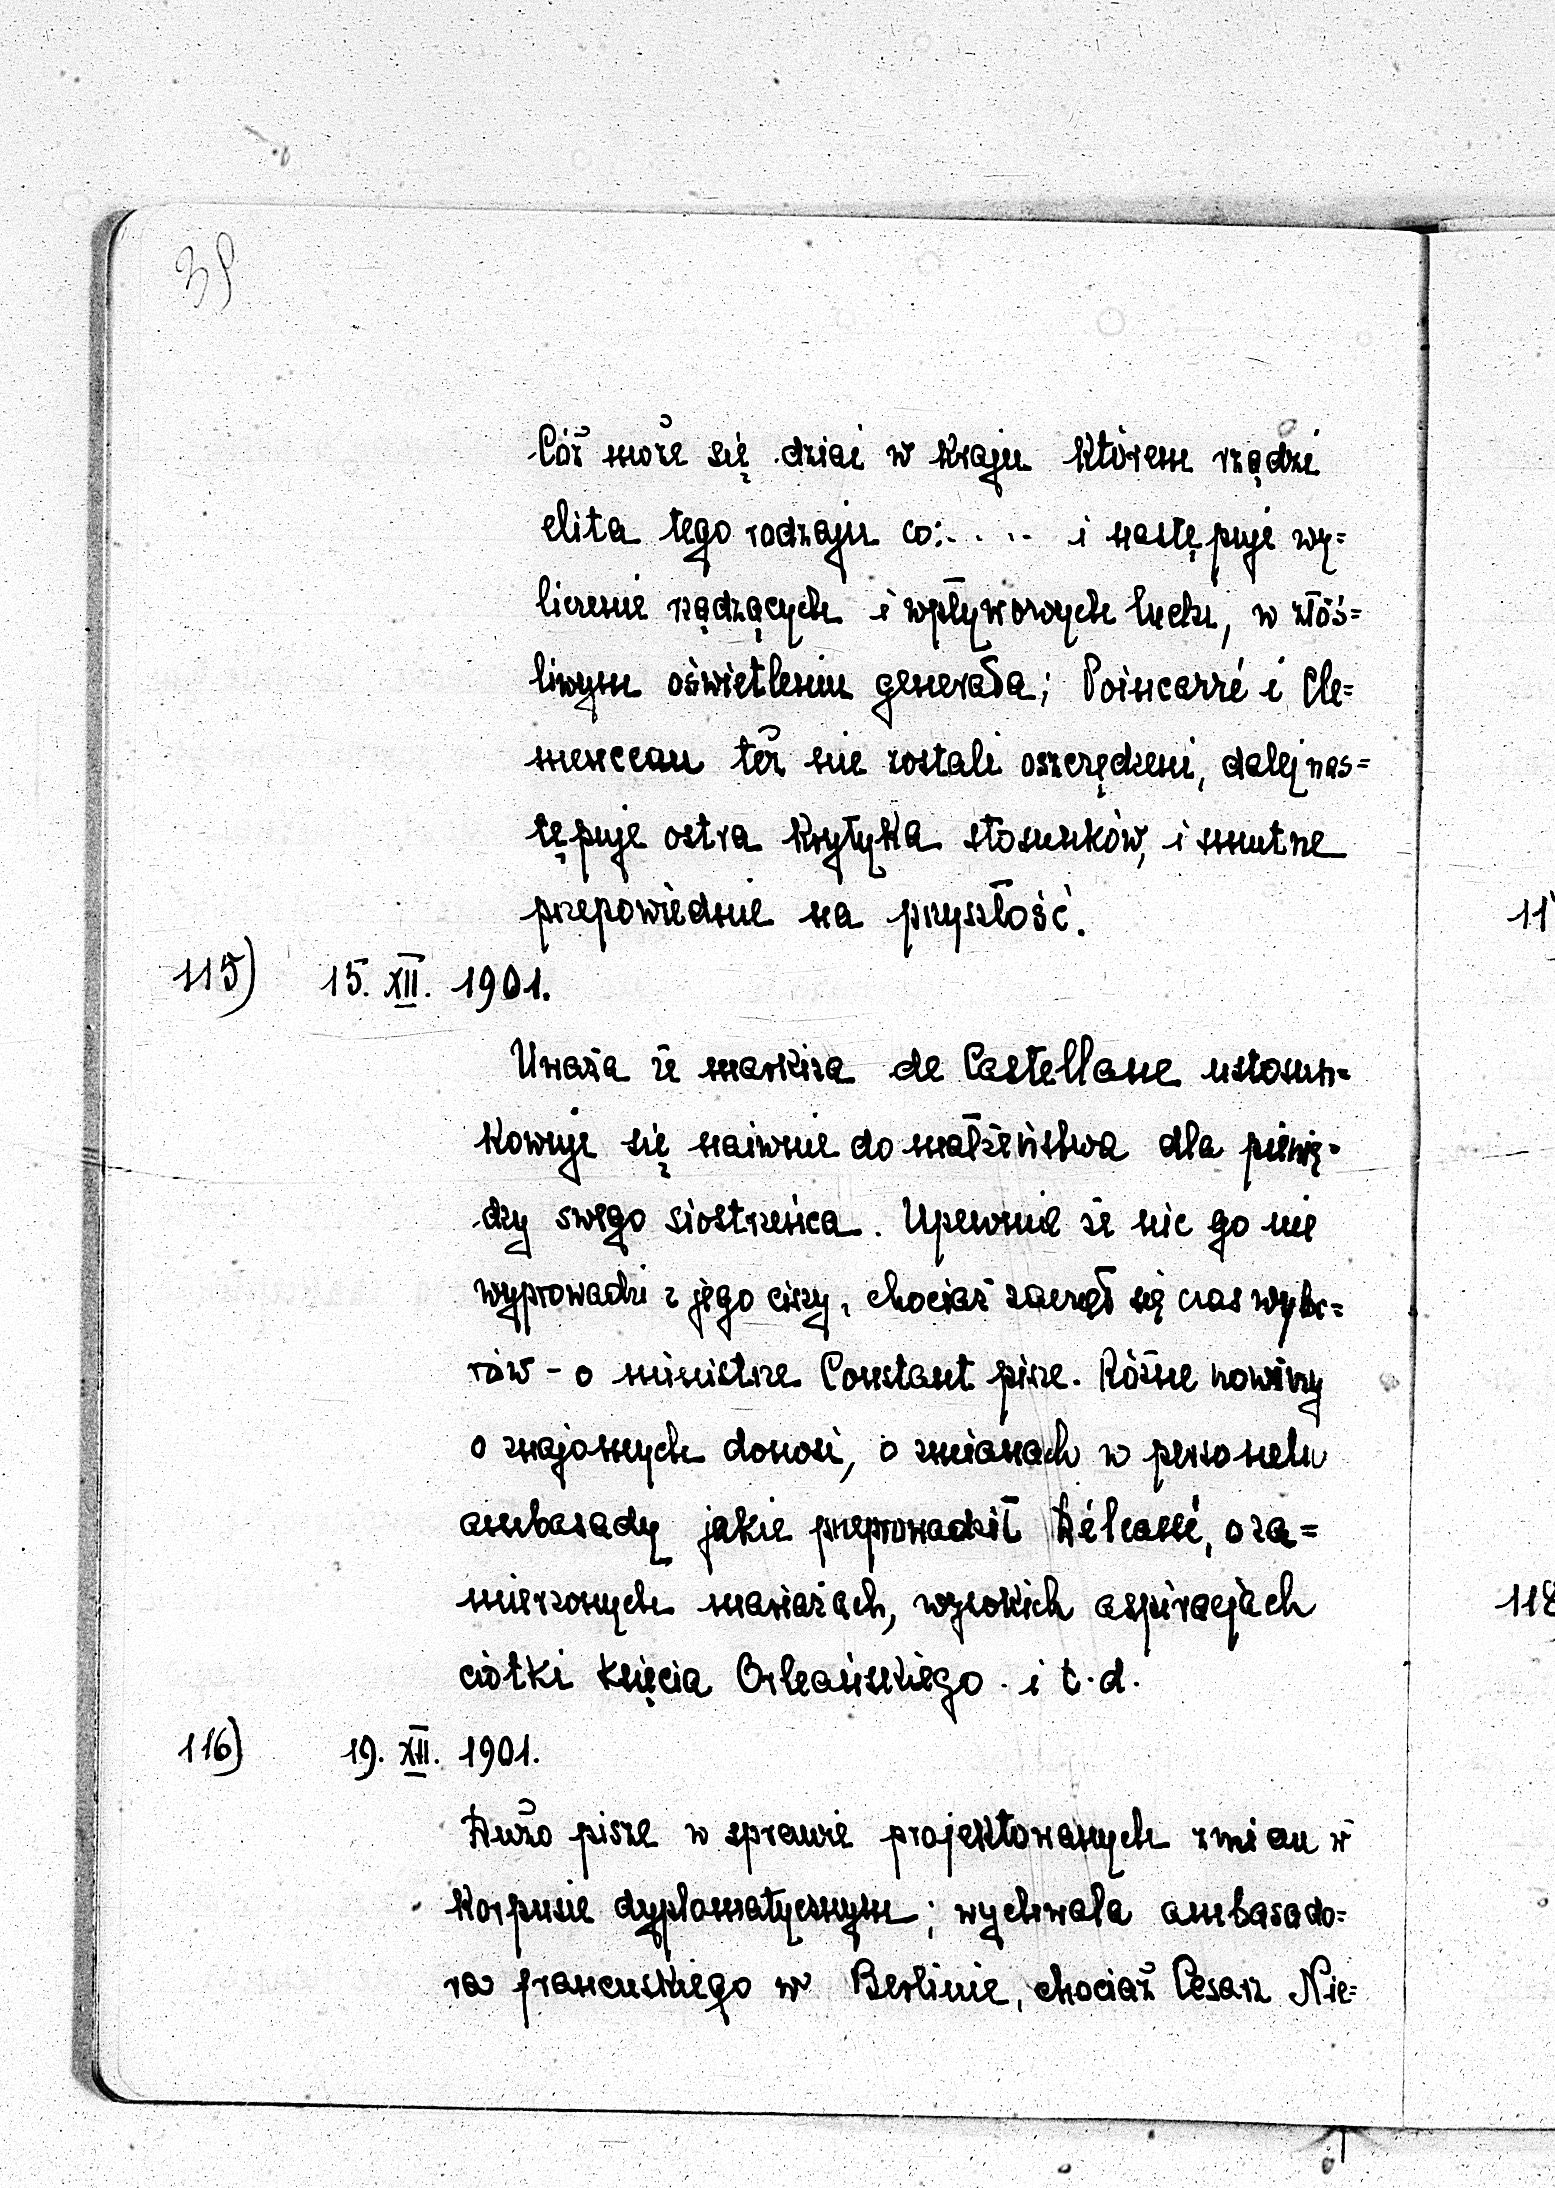 39
Cóż może się dziać w kraju którem rządzi
elita tego rodzaju co:..... i następuje wy=
liczenie rządzących i wpływowych ludzi, w złoś=
liwym oświetleniu generała; Poincarré i Cle=
menceau też nie zostali oszczędzeni, dalej nas=
tępuje ostra krytyka stosunków, i smutne
przepowiednie na przyszłość.
115) 15. XII. 1901.
Uważa że markiza de Castellane ustosun=
kowuje się naiwnie do małżeństwa dla pienię=
dzy swego siostrzeńca. Upewnia że nic go nie
wyprowadzi z jego ciszy, chociaż zaczął się czas wybo=
rów - o ministrze Constant pisze. Różne nowiny
o znajomych donosi, o zmianach w personelu
ambasady jakie przeprowadził Délcassé, o za=
mierzonych mariażach, wysokich aspiracjach
ciotki księcia Orleańskiego. i t.d.
116) 19. XII. 1901.
Dużo pisze w sprawie projektowanych zmian w
korpusie dyplomatycznym; wychwala ambasado=
ra francuskiego w Berlinie, chociaż Cesarz Nie=
11
118